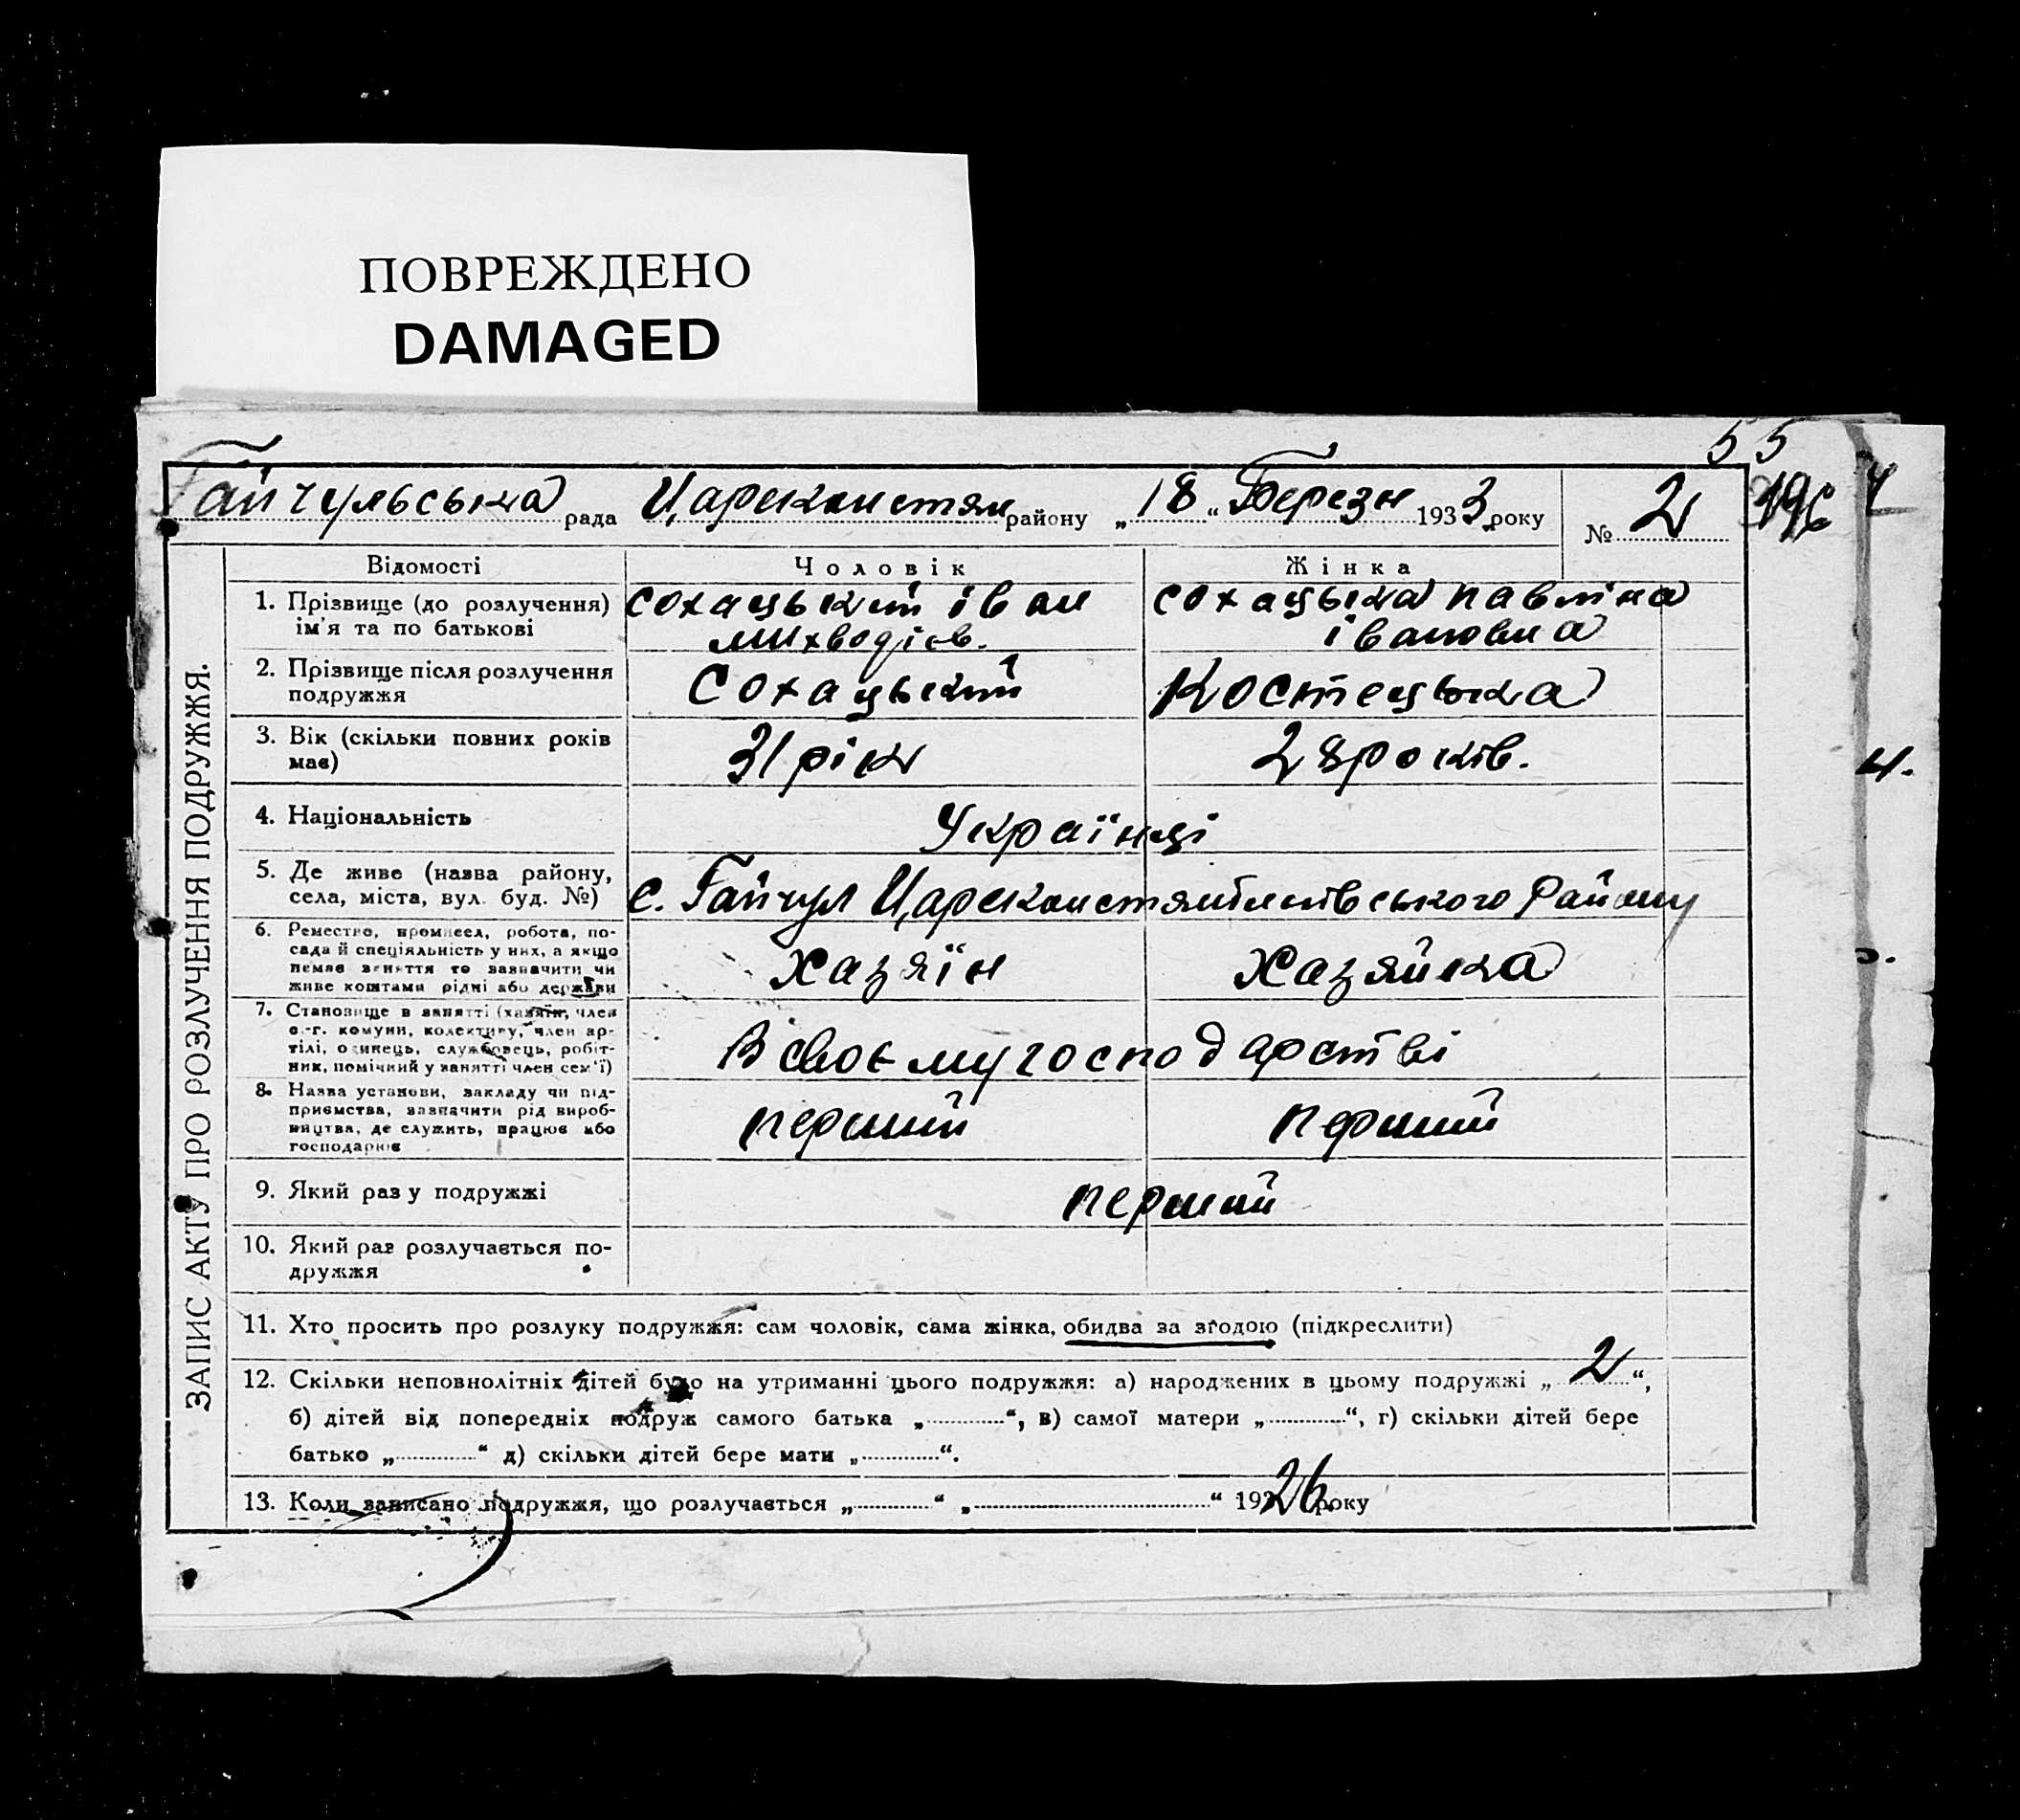 ПОВРЕЖДЕНО
DAMAGED
55
Гайчульська рада Царекконстян району „18“ Березн 1933 року № 2 196
ЗАПИС АКТУ ПРО РОЗЛУЧЕННЯ ПОДРУЖЖЯ.
Відомості Чоловік Жінка
1. Прізвище (до розлучення) ім'я та по батькові
сохацький іван
сохацька павліна
івановна
2. Прізвище після розлучення подружжя
Сохацький Костецька
3. Вік (скільки повних років має)
31 рік 28 років.
4. Національність Українці
5. Де живе (назва району, села, міста, вул. буд. №)
с. Гайчул Району
6. Ремество, промисел, робота, по-
сада й спеціяльність у них, а якщо
немає заняття то зазначити чи
живе коштами рідні або держави
Хазяїн Хазяйка
7. Становище в занятті (хазяїн, член
с.-г. комуни, колективу, член ар-
тілі, одинець, службовець, робіт-
ник, помічний у занятті член сем'ї)
В своєму господарстві
8. Назва установи, закладу чи під-
приємства, зазначити рід вироб-
ництва, де служить, працює або
господарює
перший перший
9. Який раз у подружжі перший
10. Який раз розлучається по-
дружжя
11. Хто просить про розлуку подружжя: сам чоловік, сама жінка, обидва за згодою (підкреслити)
12. Скільки неповнолітніх дітей було на утриманні цього подружжя: а) народжених в цьому подружжі „2“,
б) дітей від попередніх подруж самого батька „“, в) самої матери „“, г) скільки дітей бере
батько „“ д) скільки дітей бере мати „“.
13. Коли записано подружжя, що розлучається „“ „“ 1926 року